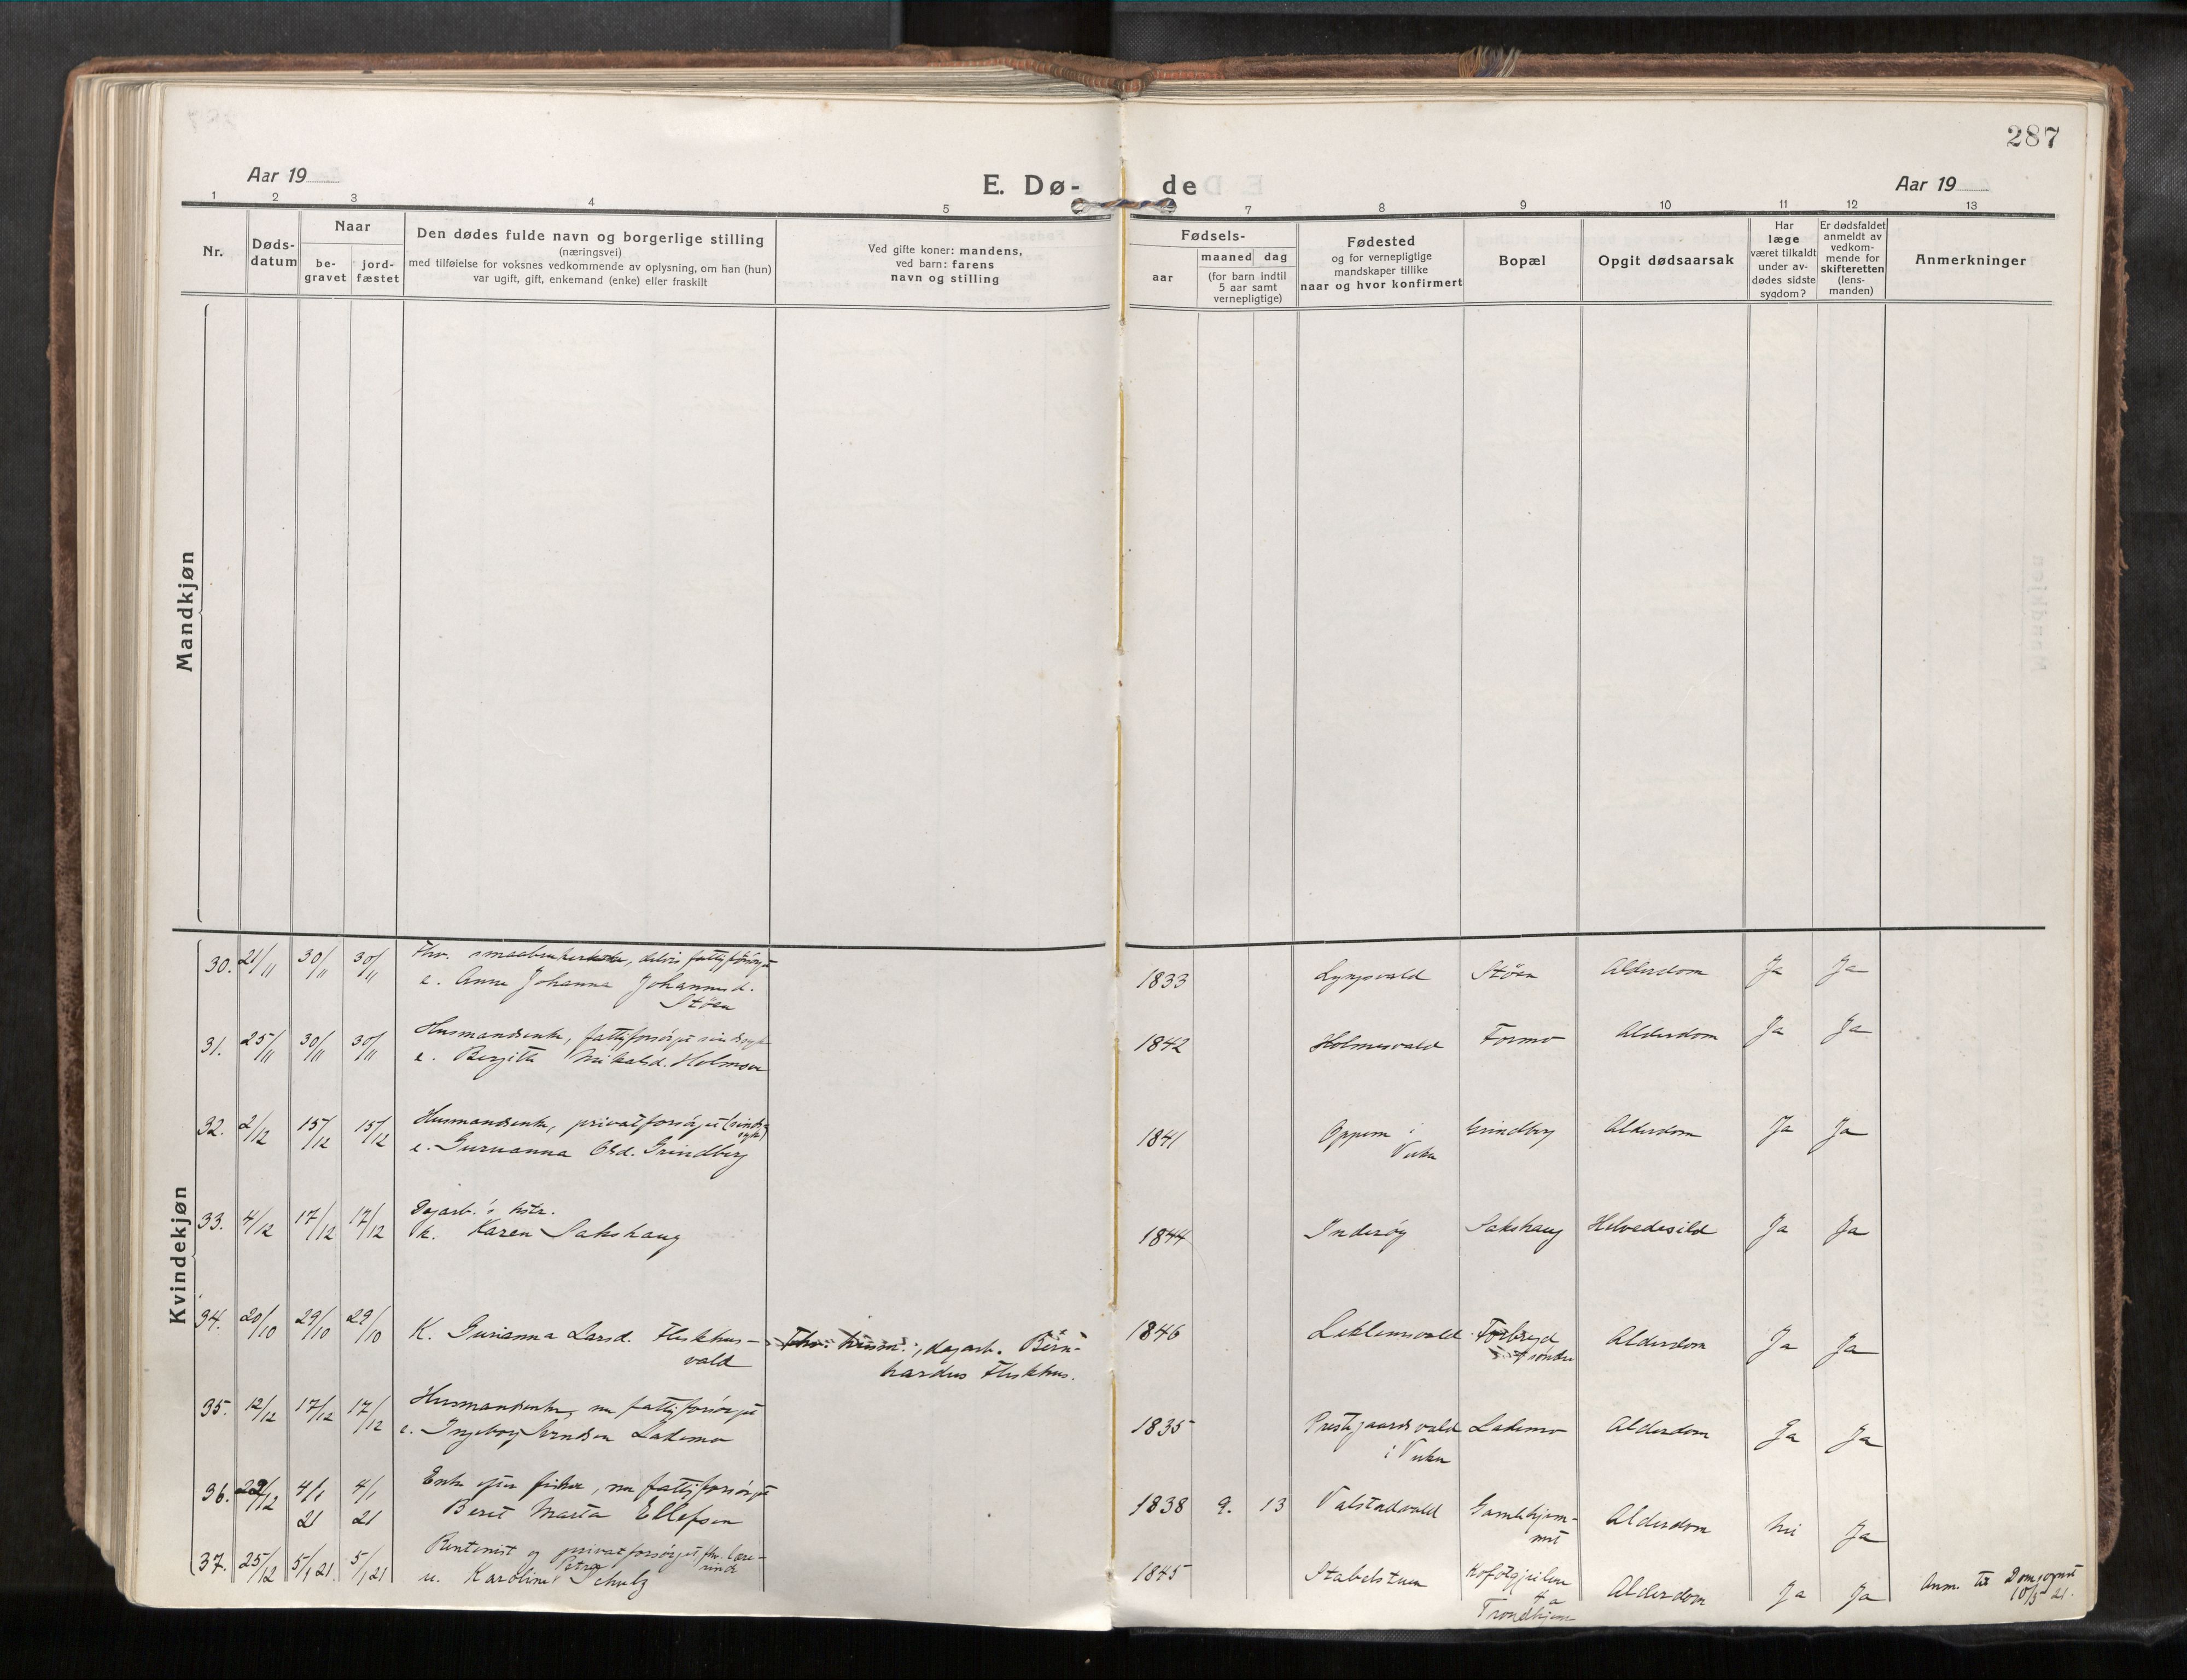 287
Aar 19
E. Dø-
de
Aar 19
1 2 3 4 5 7 8 9 10 11 12 13
Nr.
Døds-
datum
Naar
be-
gravet
jord-
fæstet
Den dødes fulde navn og borgerlige stilling
(næringsvei)
med tilføielse for voksnes vedkommende av oplysning, om han (hun)
var ugift, gift, enkemand (enke) eller fraskilt
Ved gifte koner: mandens,
ved barn: farens
navn og stilling
Fødsels-
aar
maaned dag
(for barn indtil
5 aar samt
vernepligtige)
Fødested
og for vernepligtige
mandskaper tillike
naar og hvor konfirmert
Bopæl
Opgit dødsaarsak
Har
læge
været tilkaldt
under av-
dødes sidste
sygdom?
Er dødsfaldet
anmeldt av
vedkom-
mende for
skifteretten
(lens-
manden)
Anmerkninger
Mandkjøn
Kvindekjøn
30. 21/11 30/11 30/11
e. Anna Johanna Johannesd.
Støen
1833 Støen Alderdom Ja Ja
31. 25/11 30/11 30/11 Husmandsenke, fattigforsørget sindssyk
e. Bergitte Mikalsd. Holmsve
1842 Holmesvald Formo Alderdom Ja Ja
32. 2/12 15/12 15/12 Husmandsenke, privatforsørget (sinds-
syk)
e. Guruanna Olsd. Grindberg
1841 Oppem i
Vuku
Grindberg Alderdom Ja Ja
33. 4/12 17/12 17/12 Dagarb.
k. Karen Sakshaug
1844 Inderøy Sakshaug Helvedesild Ja Ja
34. 20/10 29/10 29/10 K. Gurianna Larsd. Fleskhus-
vald
Fhv. husm., dagarb. Bern-
hardus Fleskhus.
1846 Leklemsvald Forbregd
søndre
Alderdom Ja Ja
35. 12/12 17/12 17/12 Husmandsenke, nu fattigforsørget
e. Ingeborg Arndsen Lademo
1835 Prestegaardsvald
i Vuku
Lademo Alderdom Ja Ja
36. 22/12 4/1 21 4/1 21 Enke efter fisker, nu fattigforsørget
Beret Marta Ellefsen
1838 9. 13 Valstadvald Gamlehjem-
met
Alderdom Nei Ja
37. 25/12 5/1 21 5/1 21 Rentenist og privatforsørget, fhv. lære-
rinde
u. Karoline Petra Schulz
1845 Stabelstuen
Trondhjem
Alderdom Ja Ja Anm. til Domsognet
10/3 21.